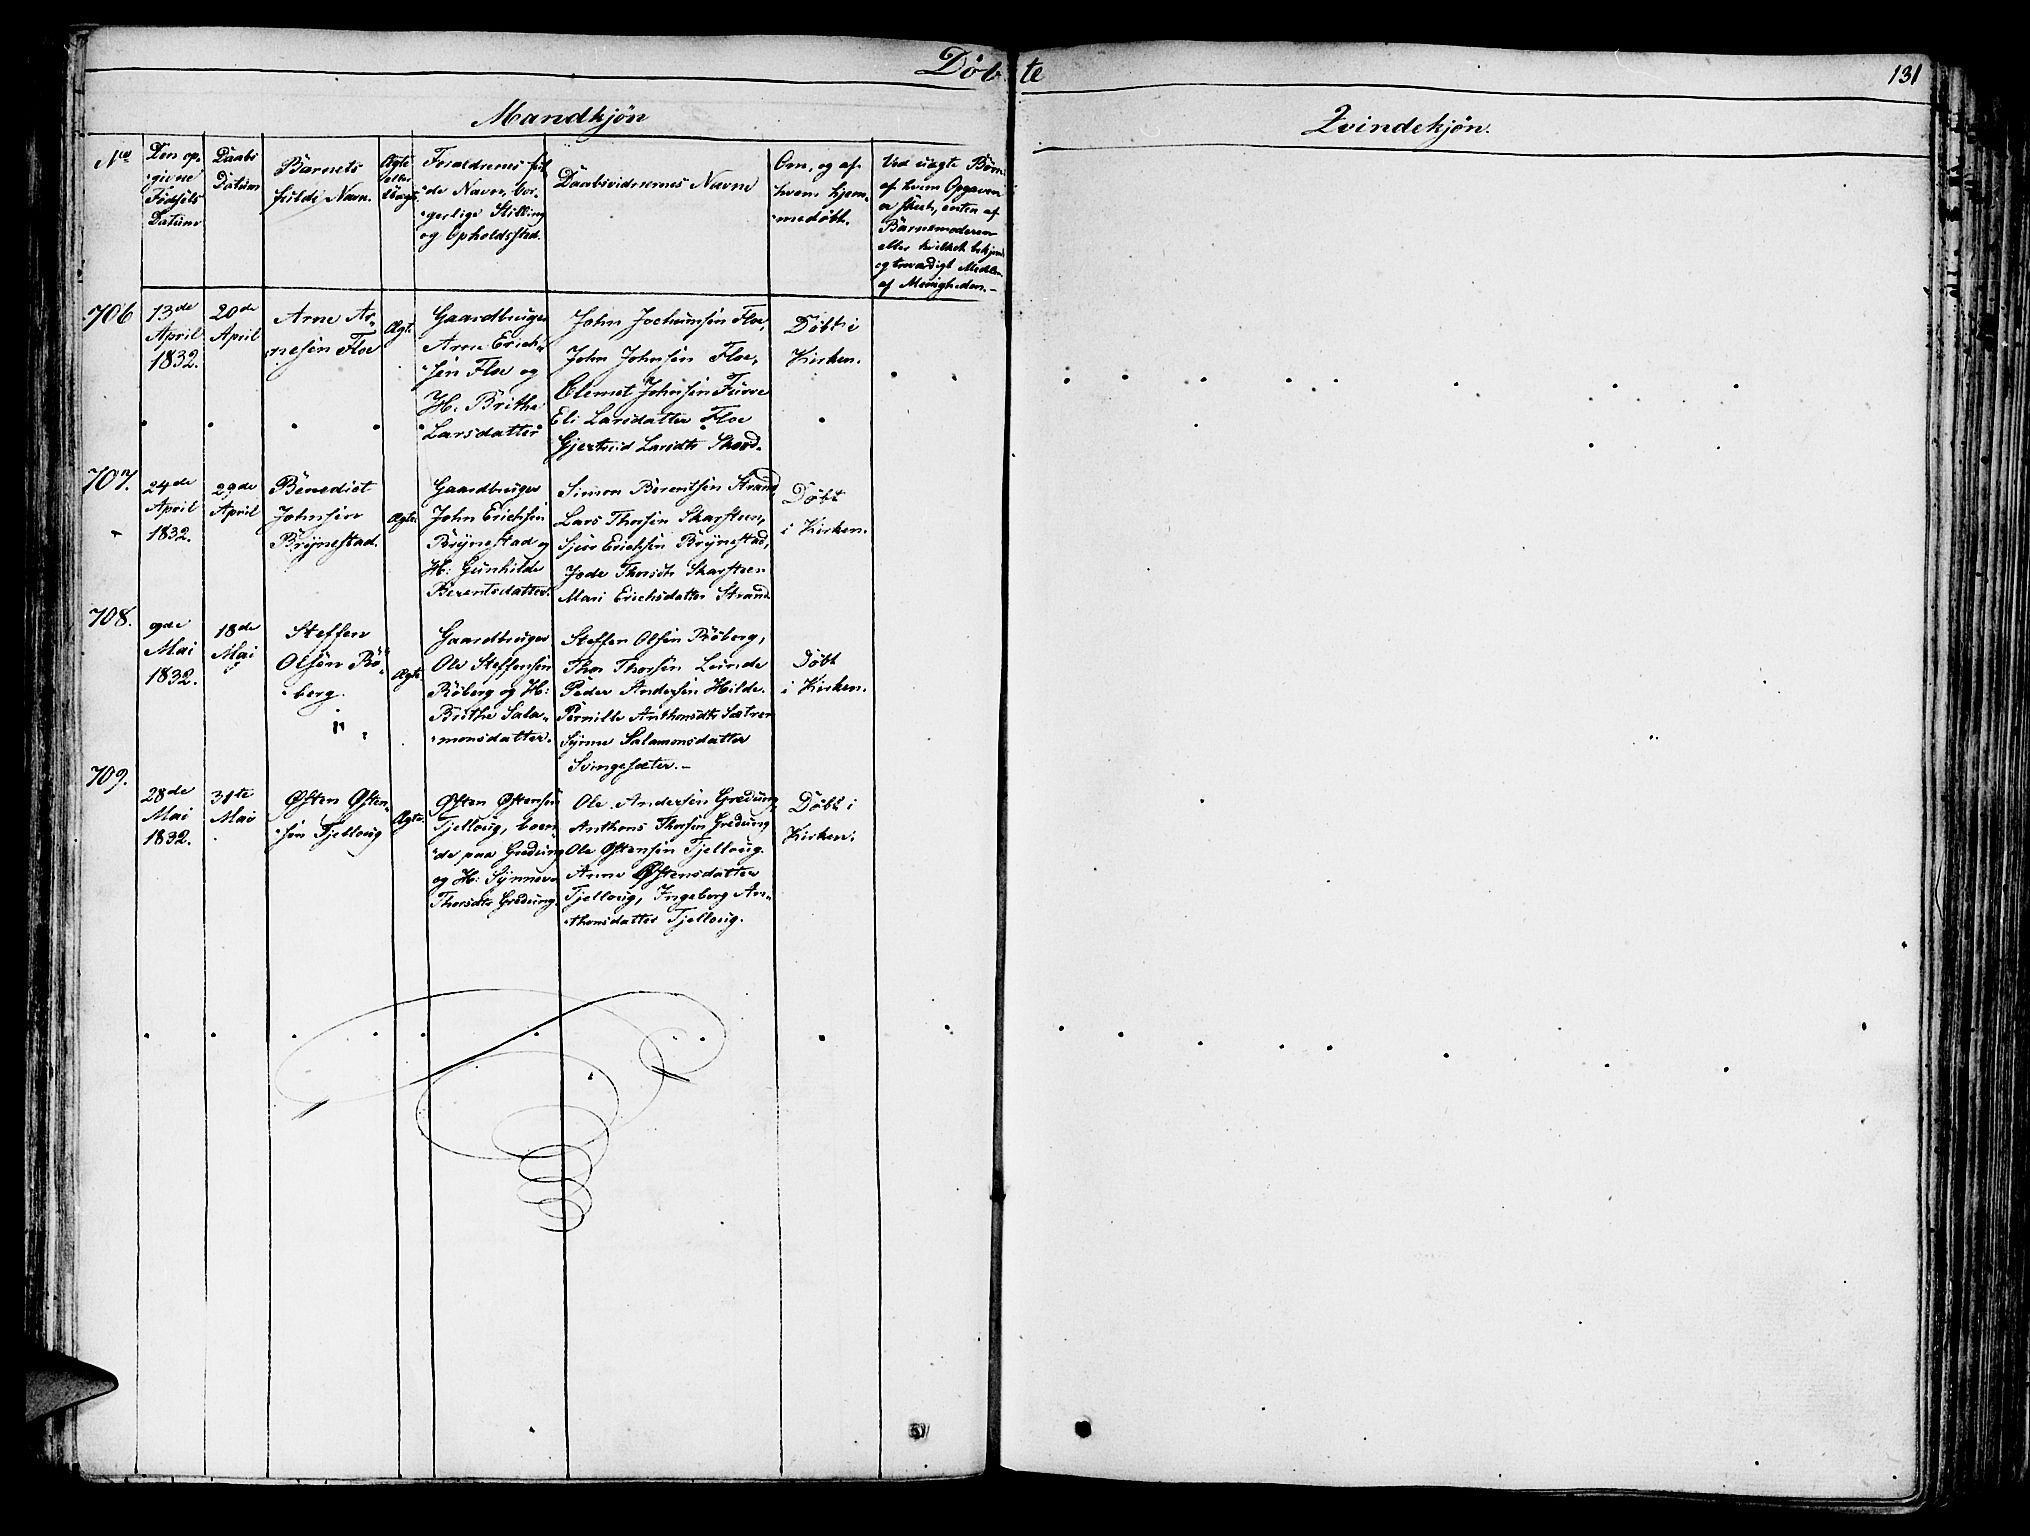 Døbte
131
Mandkjøn
Qvindekjøn.
No
Den op-
givne
Fødsels
Datum
Daabs
Datum
Barnets
fulde Navn.
Ægte
eller
Uægte
Forældrenes ful-
de Navn, bor-
gerlige Stilling
og Opholdssted.
Daabsvidnernes Navne
Om, og af
hvem hjem-
medøbt.
Ved uægte Børn
af hvem Opgaven
er skeet, enten af
Barnemoderen
eller hvilket bekjend
og troværdigt Medlem
af Menigheden.-
706
13de
April
1832.
20de
April
Arne Ar-
nesen Floe
Ægte
Gaardbruger
Arne Erich-
sen Floe og
H: Brithe
Larsdatter
John Jochumsen Floe,
John Johnsen Floe,
Clemet Johnsen Furre
Eli Larsdatter Floe
Gjertrud Larsdtr
Døbt i
Kirken.
707.
24de
April
1832.
29de
April
Benedict
Johnsen
Brynestad.
Ægte
Gaardbruger
John Erichsen
Brynestad og
H: Gunhilde
Berentsdatter.
Simon Berentsen Strand
Lars Thorsen Skarsteen,
Sjur Erichsen Brynestad,
Jode Thorsdtr Skarsteen
Mari Erichsdatter Strand
Døbt
i Kirken.
708.
9de
Mai
1832.
18de
Mai
Steffen
Olsen Rø-
berg.
Ægte
Gaardbruger
Ole Steffensen
Røberg og H:
Brithe Sala-
monsdatter.
Steffen Olsen Røberg,
Thor Thorsen Lunde
Peder Andersen Hilde.
Pernille Anthonsdtr Sætren
Synne Salamonsdatter
Svingesæter.-
Døbt
i Kirken.
709.
28de
Mai
1832.
31te
Mai
Østen Østen-
sen Tjelloug
Ægte
Østen Østensen
Tjelloug, boen-
de paa Gredung
og H: Synneve
Thorsdtr Gredung.
Ole Andersen Gredung,
Anthons Thorsen Gredung
Ole Østensen Tjelloug
Anne Østensdatter
Tjelloug, Ingeborg An-
thonsdatter Tjelloug.
Døbt i
Kirken.